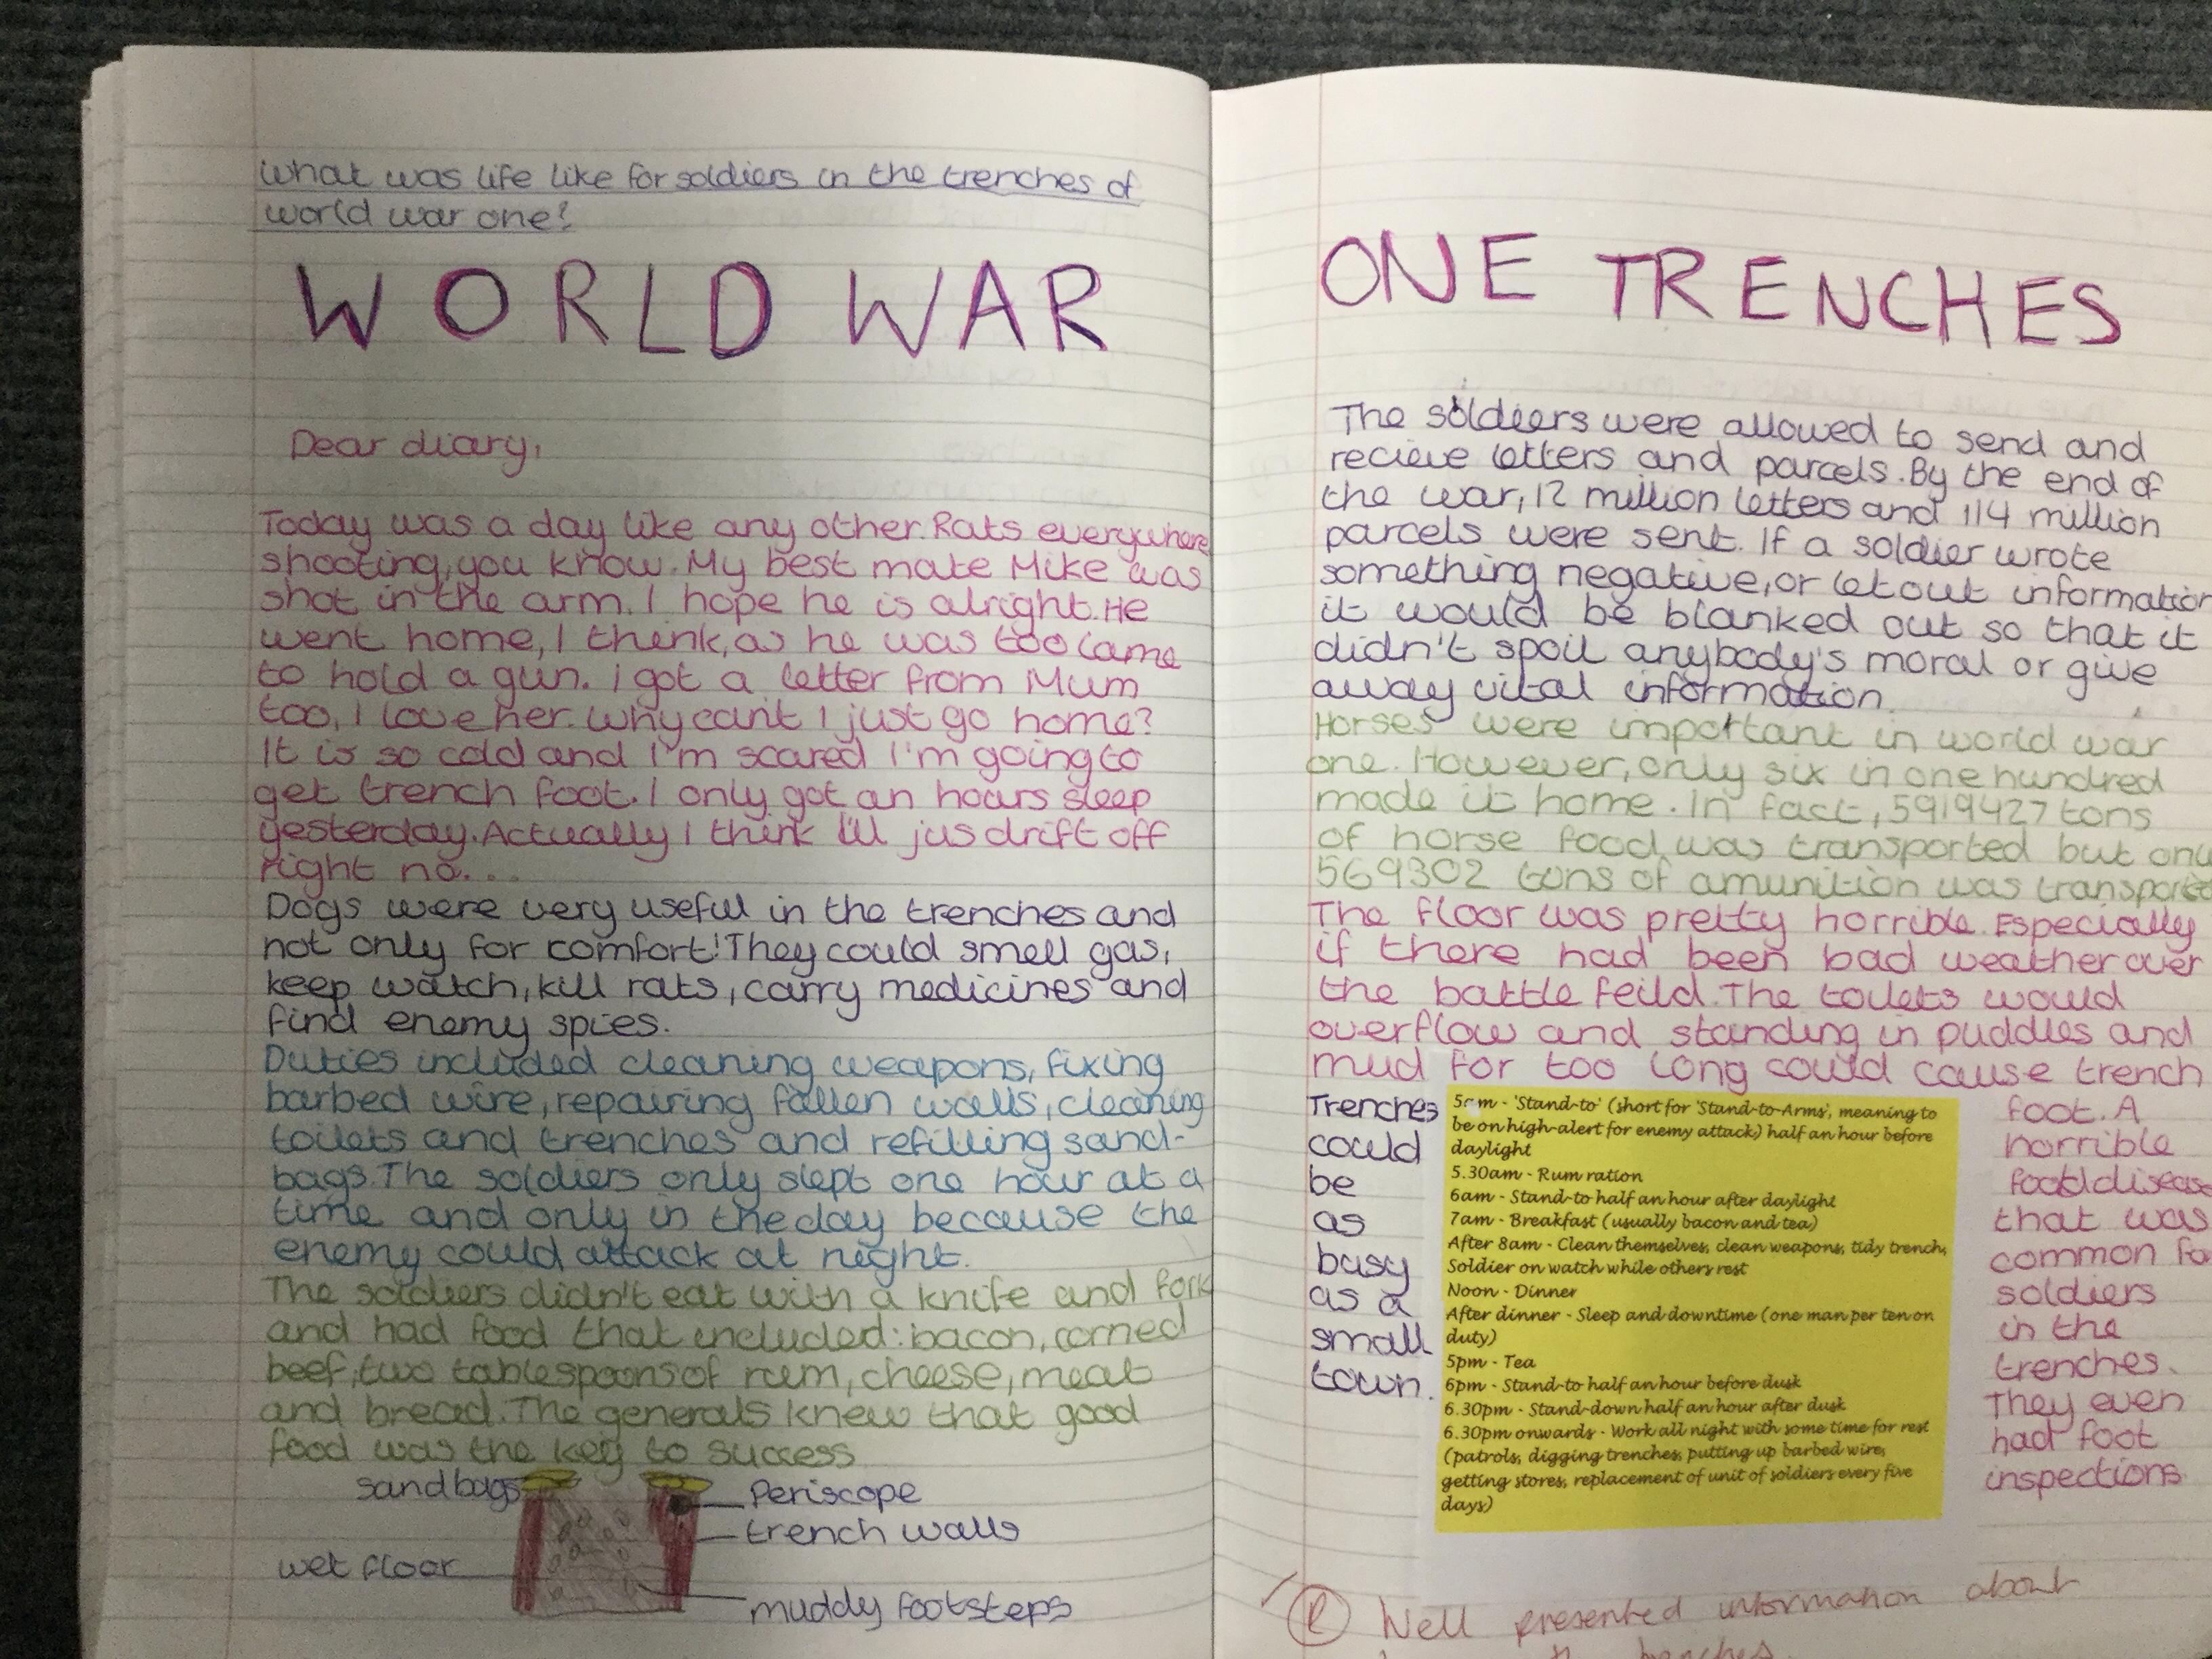 What was life like for soldiers in the trenches of
world war one?
WORLD WAR
Dear diary,
Today was a day like any other. Rats everywhere,
shooting, you know. My best mate Mike was
shot in the arm. I hope he is alright. He
went home, I think, as he was too lame
to hold a gun. I got a letter from Mum
too, I love her. Why cant I just go home?
It is so cold and I'm scared I'm going to
get trench foot. I only got an hours sleep
yesterday. Actually I think I'll jus drift off
right no...
Dogs were very useful in the trenches and
not only for comfort! They could smell gas,
keep watch, kill rats, carry medicines and
find enemy spies.
Duties included cleaning weapons, fixing
barbed wire, repairing fallen walls, cleaning
toilets and trenches and refilling sand-
bags. The soldiers only slept one hour at a
time and only in the day because the
enemy could attack at night.
The soldiers didn't eat with a knife and fork
and had food that included: bacon, corned
beef, two tablespoons of rum, cheese, meat
and bread. The generals knew that good
food was the key to success
sandbags
Periscope
trench walls
wet floor
muddy footsteps
ONE TRENCHES
The soldiers were allowed to send and
recieve letters and parcels. By the end of
the war, 12 million letters and 114 million
parcels were sent. If a soldier wrote
something negative, or let out information
it would be blanked out so that it
didn't spoil anybody's moral or give
away vital information.
Horses were important in world war
one. However, only six in one hundred
made it home. In fact, 5919427 tons
of horse food was transported but only
569302 tons of amunition was transported
The floor was pretty horrible. Especially
if there had been bad weather over
the battle feild. The toilets would
overflow and standing in puddles and
mud for too long could cause trench
foot. A
horrible
foot disease
that was
common for
soldiers
in the
trenches.
They even
had foot
inspections
Trenches
could
be
as
busy
as a
small
town.
5am - 'Stand-to' (short for 'Stand-to-Arms', meaning to
be on high-alert for enemy attack) half an hour before
daylight
5.30am - Rum ration
6am - Stand-to half an hour after daylight
7am - Breakfast (usually bacon and tea)
After 8am - Clean themselves, clean weapons, tidy trench,
Soldier on watch while others rest
Noon - Dinner
After dinner - Sleep and downtime (one man per ten on
duty)
5pm - Tea
6pm - Stand-to half an hour before dusk
6.30pm - Stand-down half an hour after dusk
6.30pm onwards - Work all night with some time for rest
(patrols, digging trenches, putting up barbed wire,
getting stores, replacement of unit of soldiers every five
days)
Well presented information about
trenches.